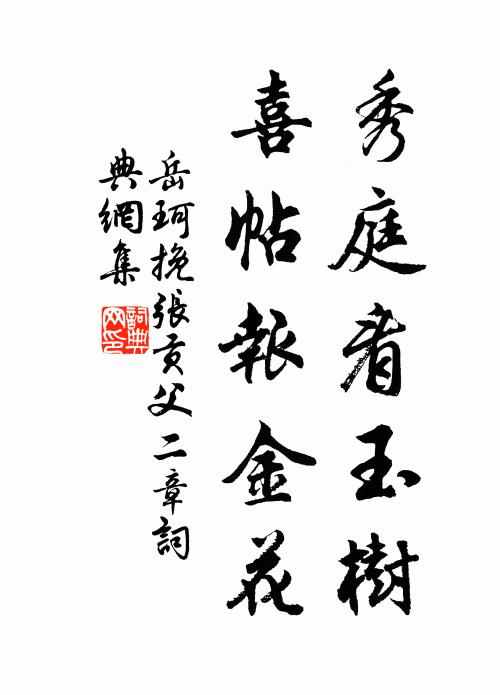 秀庭看玉樹
喜帖報金花
岳珂挽張貢父二章詞
典網集
詞典网印